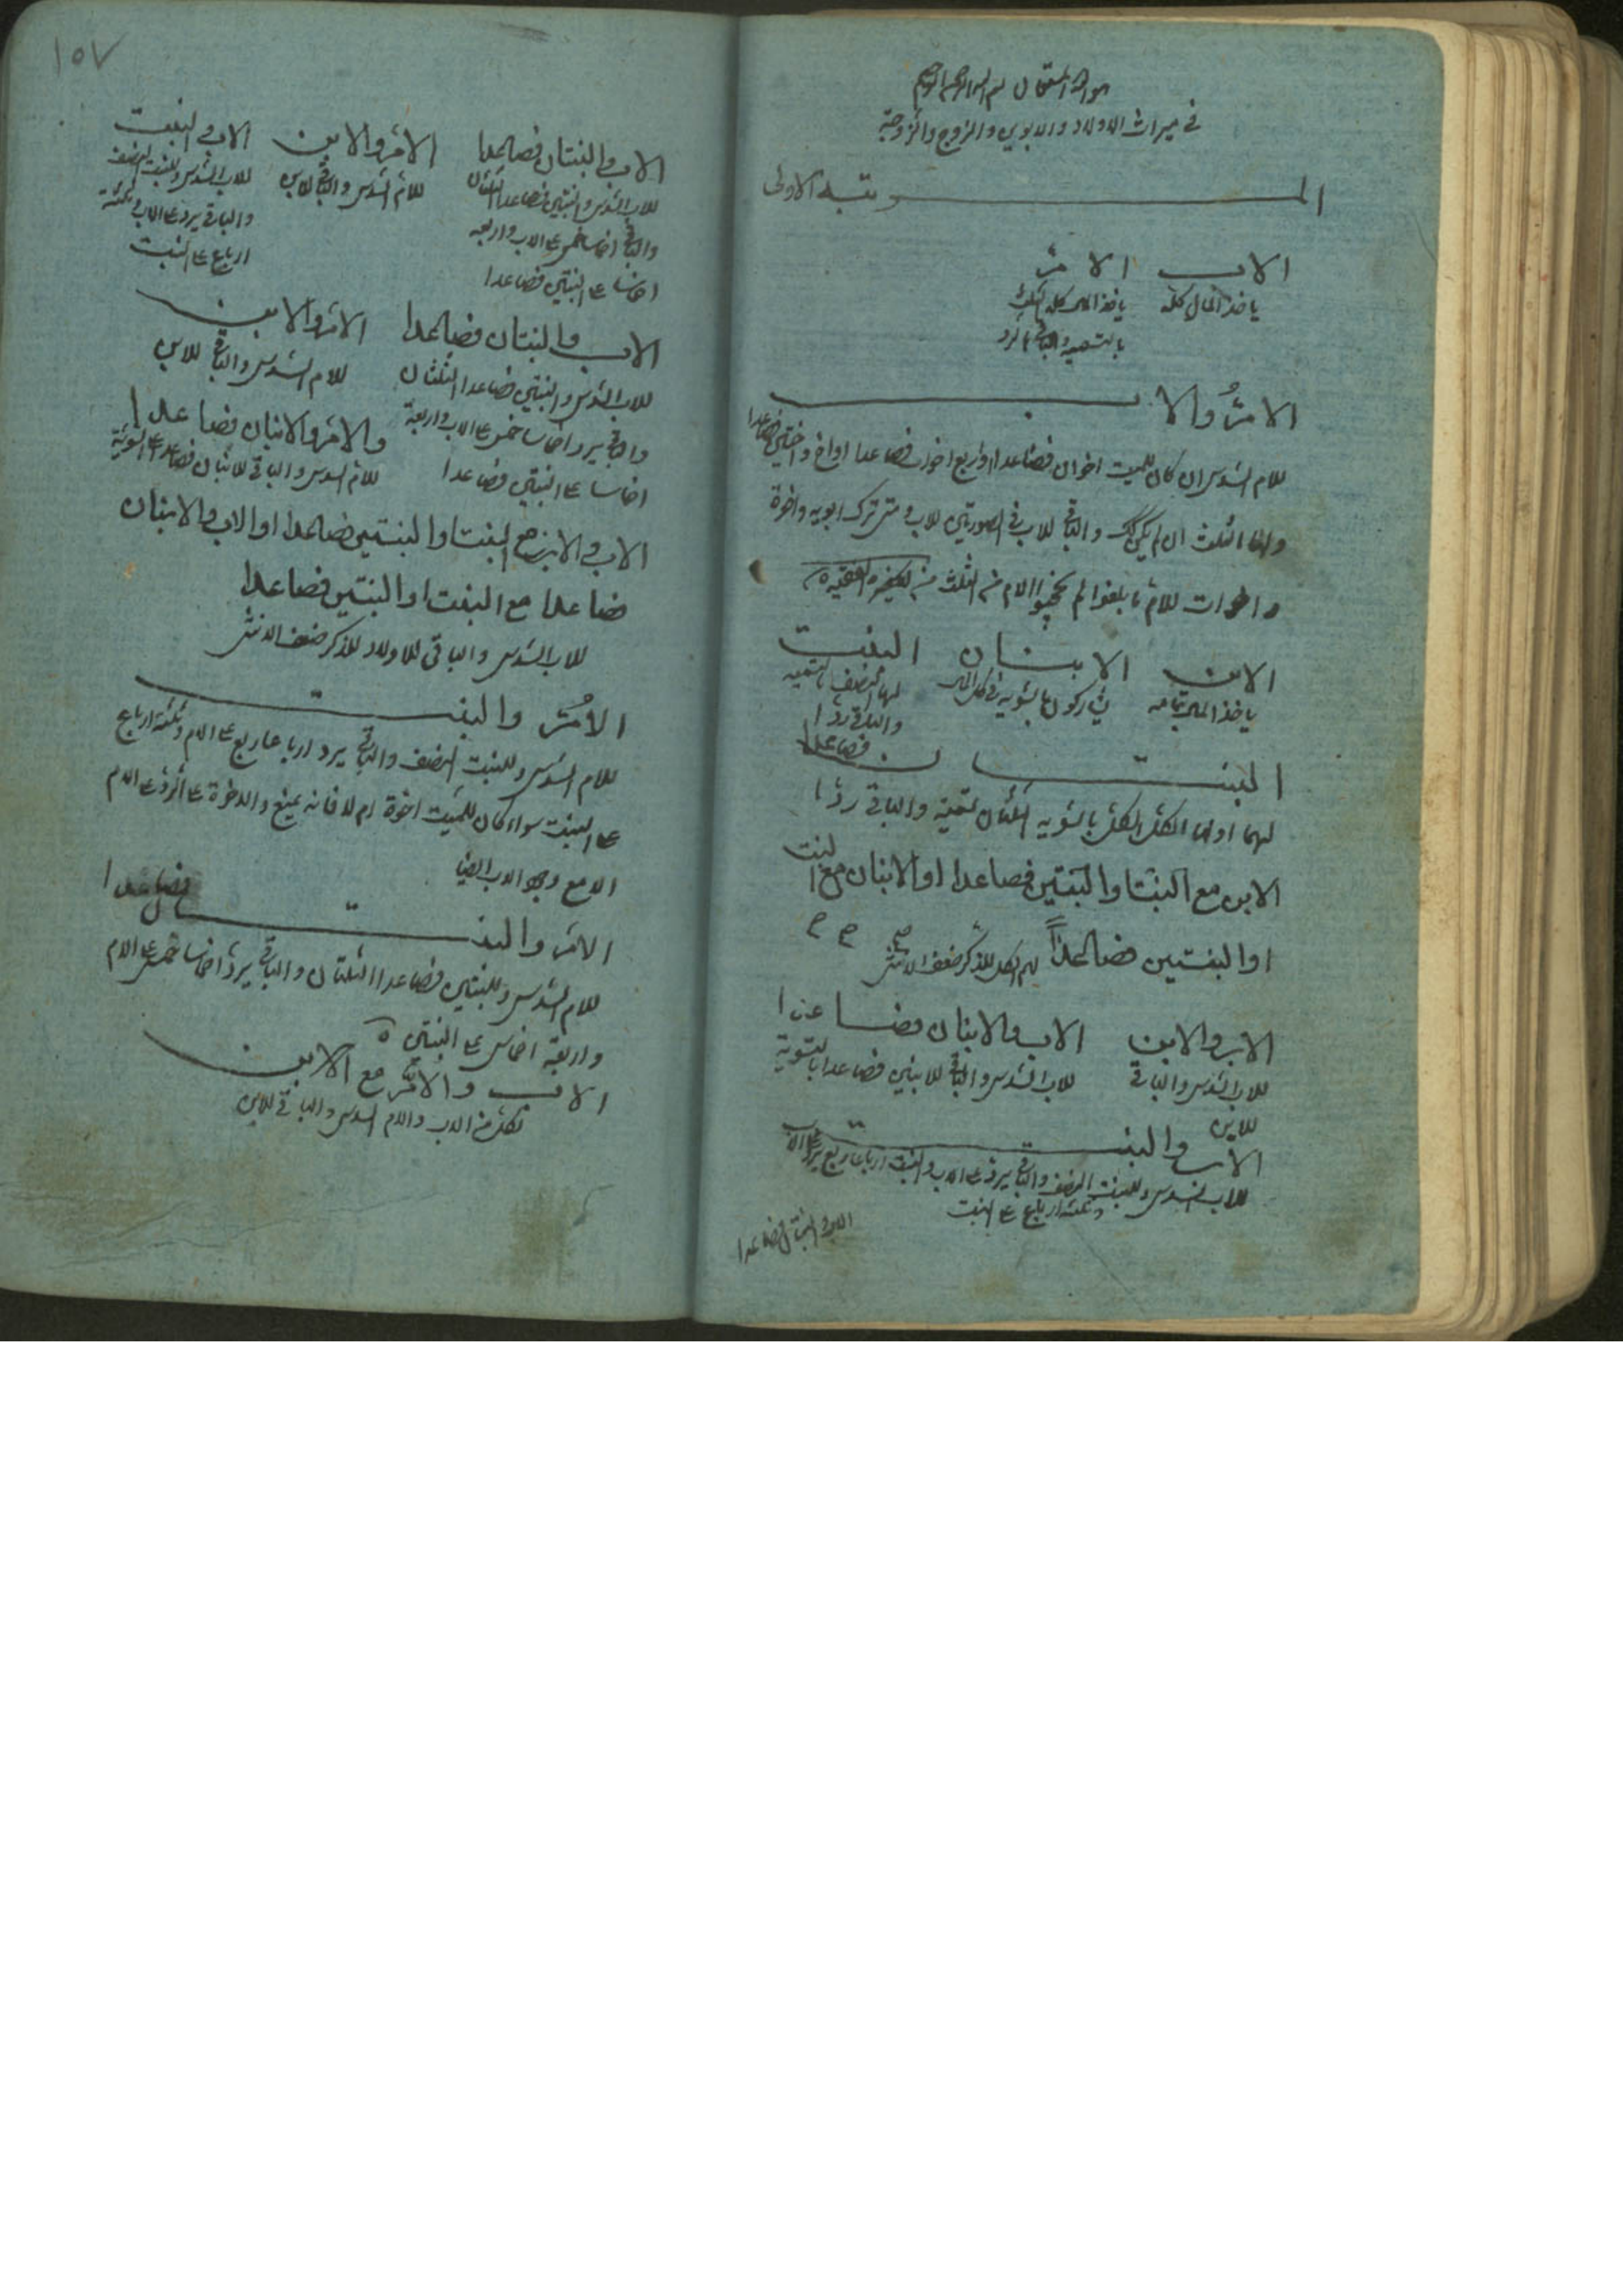 هو الله المستعان بسم الله الرحمن الرحيم
في ميراث الاولاد والابوين والزوج والزوجة
المرتبة الاولى
الاب الام
ياخذ المال كله ياخذ المال كله الثلث
بالتسمية والباقي بالرد
الام والاب
للام السدس ان كان للميت اخوان فصاعدا او اربع اخوات فصاعدا او اخ واختين فصاعدا
ولها الثلث ان لم يكن كذلك والباقي للاب في الصورتين للاب ومتى ترك ابويه واخوة
واخوات للام ما بلغوا لم يحجبوا الام من الثلث
الابن الابنان البنت
ياخذ المال بتمامه يشاركون بالسوية في كل المال لها النصف بالتسمية
والباقي ردا
البنتان فصاعدا
لهما او لها الكل بالسوية الثلثان تسمية والباقي ردا
الابن مع البنت او البنتين فصاعدا او الابنان مع البنت
او البنتين فصاعدا لهم الكل للذكر ضعف الانثى
الاب والابن الاب والابنان فصاعدا
للاب السدس والباقي للاب السدس والباقي للابنين فصاعدا بالسوية
للابن
الاب والبنت
للاب السدس وللبنت النصف والباقي يرد على الاب والبنت ارباعا ربع يرد على الاب
وثلثة ارباع على البنت
الاب والبنتان فصاعدا
١٥٧
الاب والبنتان فصاعدا الام والابن الاب والبنت
للاب السدس والبنتين فصاعدا الثلثان للام السدس والباقي للابن للاب السدس وللبنت النصف
والباقي اخماسا خمس على الاب واربعة والباقي يرد على الاب وثلثة
اخماس على البنتين فصاعدا ارباع على البنت
الاب والبنتان فصاعدا الام والابن
للاب السدس والبنتين فصاعدا الثلثان للام السدس والباقي للابن
والباقي يرد اخماسا خمس على الاب واربعة والام والابنان فصاعدا
اخماسا على البنتين فصاعدا للام السدس والباقي للابنان فصاعدا على السوية
الاب والابن مع البنت او البنتين فصاعدا او الاب والابنان
فصاعدا مع البنت او البنتين فصاعدا
للاب السدس والباقي للاولاد للذكر ضعف الانثى
الام والبنت
للام السدس وللبنت النصف والباقي يرد ارباعا ربع على الام وثلثة ارباع
على البنت سواء كان للميت اخوة ام لا فانه يمنع والاخوة عن الرد على الام
الا مع وجود الاب ايضا
الام والبنتان فصاعدا
للام السدس وللبنتين فصاعدا الثلثان والباقي يرد اخماسا خمس على الام
واربعة اخماس على البنتين
الاب والام مع الابن
لكل من الاب والام السدس والباقي للابن